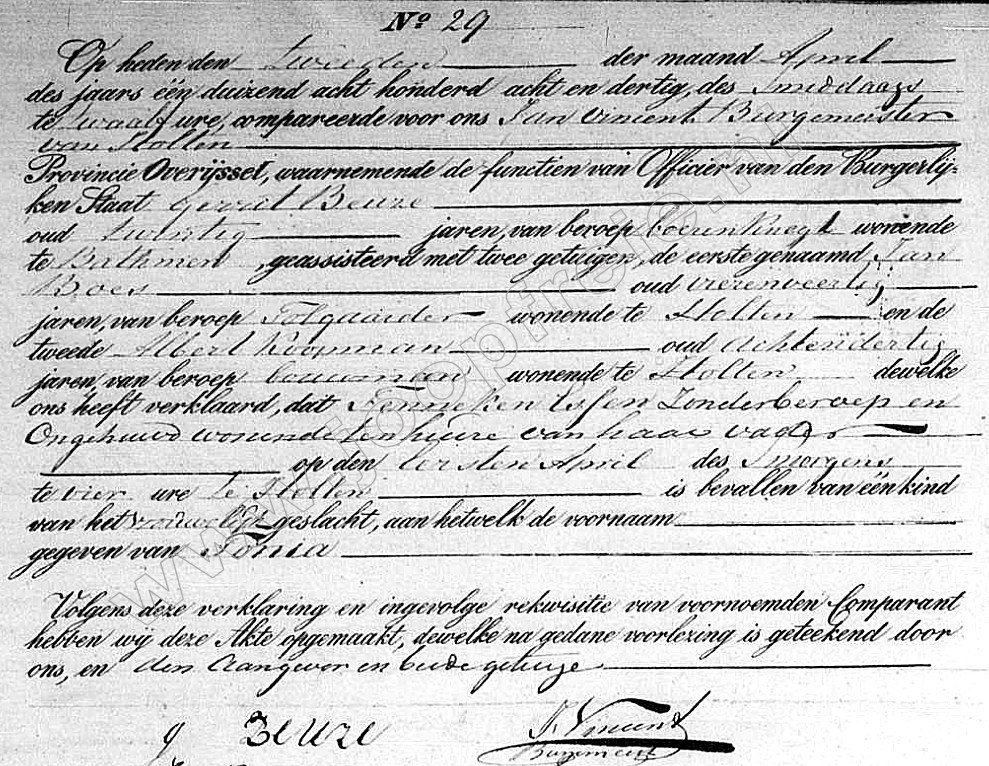 No 29
Op heden den tweeden der maand April
des jaars één duizend acht honderd acht en dertig, des smiddags
te twaalf ure, compareerde voor ons Jan Vincent Burgemeester
van Holten
Provincie Overijssel, waarnemende de functien van Officier van den Burgerlij-
ken Staat Gerrit Beuze
oud twintig jaren, van beroep boerenknegt wonende
te Bathmen, geassisteerd met twee getuigen, de eerste genaamd Jan
Boes oud vierenveertig
jaren, van beroep Tolgaarder wonende te Holten en de
tweede Albert Koopman oud achtendertig
jaren, van beroep bouwman wonende te Holten dewelke
ons heeft verklaard, dat Jenneken Zonderberoep en
Ongehuwd wonende ten huize van haar vader
op den eersten April des smorgens
te vier ure te Holten is bevallen van één kind
van het vrouwelijk geslacht, aan hetwelk de voornaam
gegeven van Tonia
Volgens deze verklaring en ingevolge rekwisitie van voornoemden Comparant
hebben wij deze Akte opgemaakt, dewelke na gedane voorlezing is geteekend door
ons, en den Aangever en beide getuige
g Beuze
J. Vincent
www.stoepfree.nl